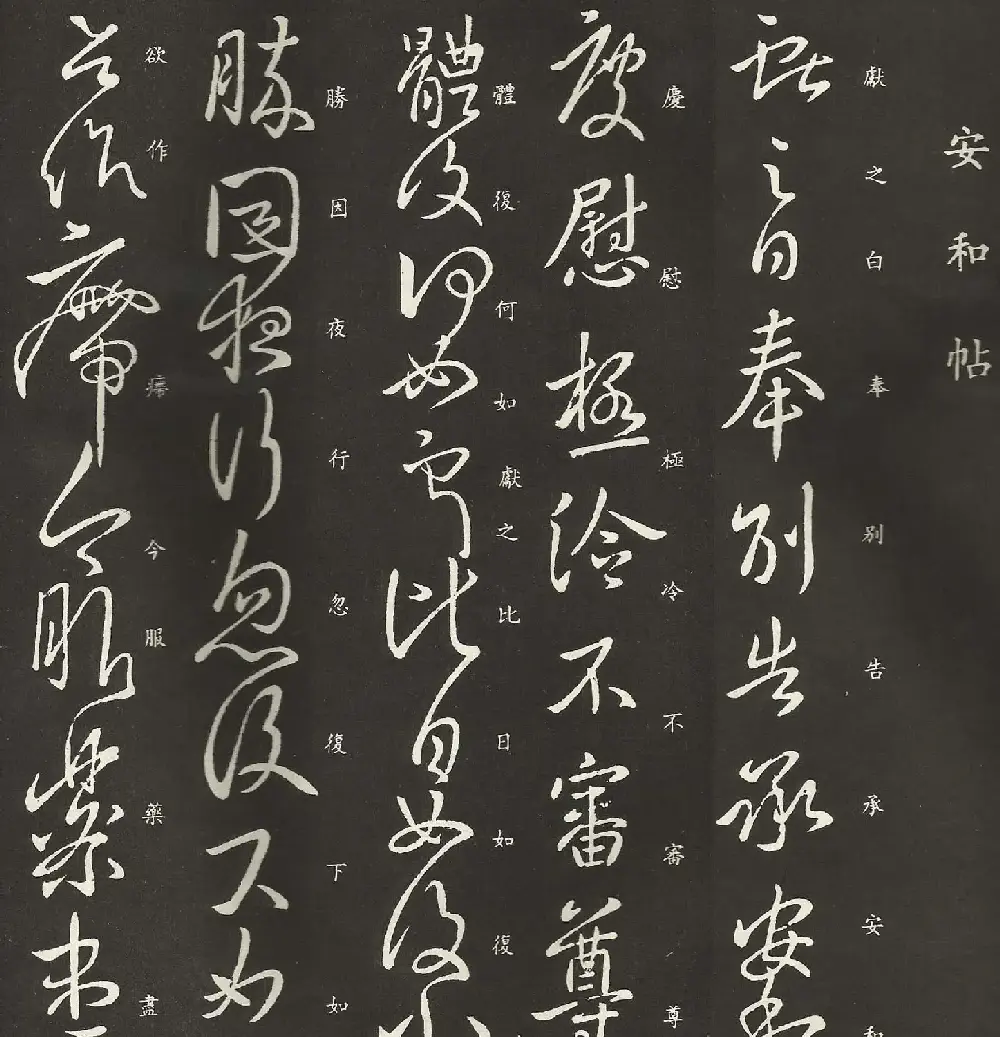 安和帖
獻之白奉別告承安和
慶慰極冷不審尊
體復何如獻之比日如復
勝因夜行忽復下如
欲作癤今服藥盡